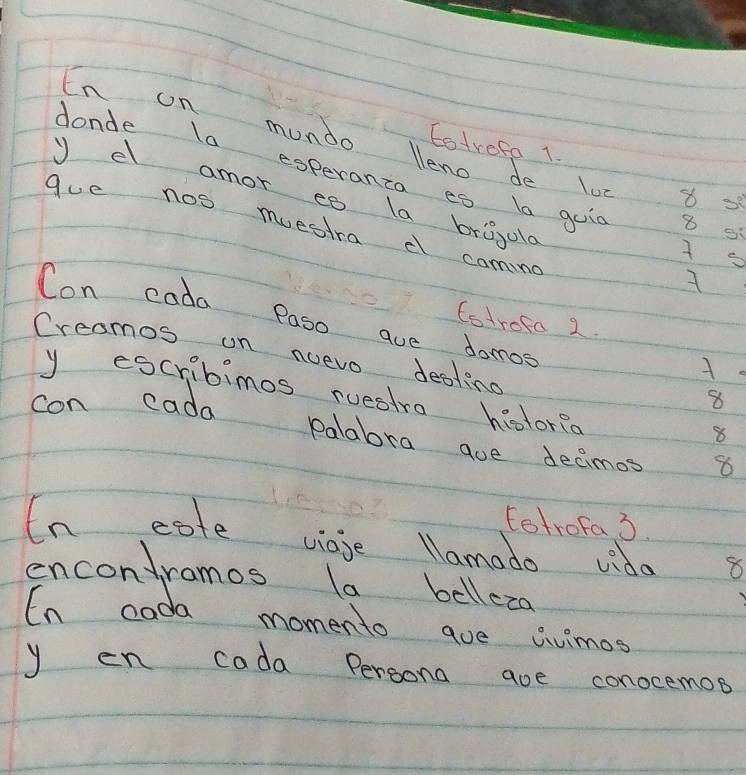 Estrofa 1.
En un mundo lleno de luz 8
donde la esperanza es la guia 8
y el amor es la brújula 7
que nos muestra el camino 7
Estrofa 2.
Con cada paso que damos 7
Creamos un nuevo destino 8
y escribimos nuestra historia 8
con cada palabra que decimos 8
Estrofa 3.
En este viaje llamado vida 8
encontramos la belleza
En cada momento que vivimos
y en cada Persona que conocemos